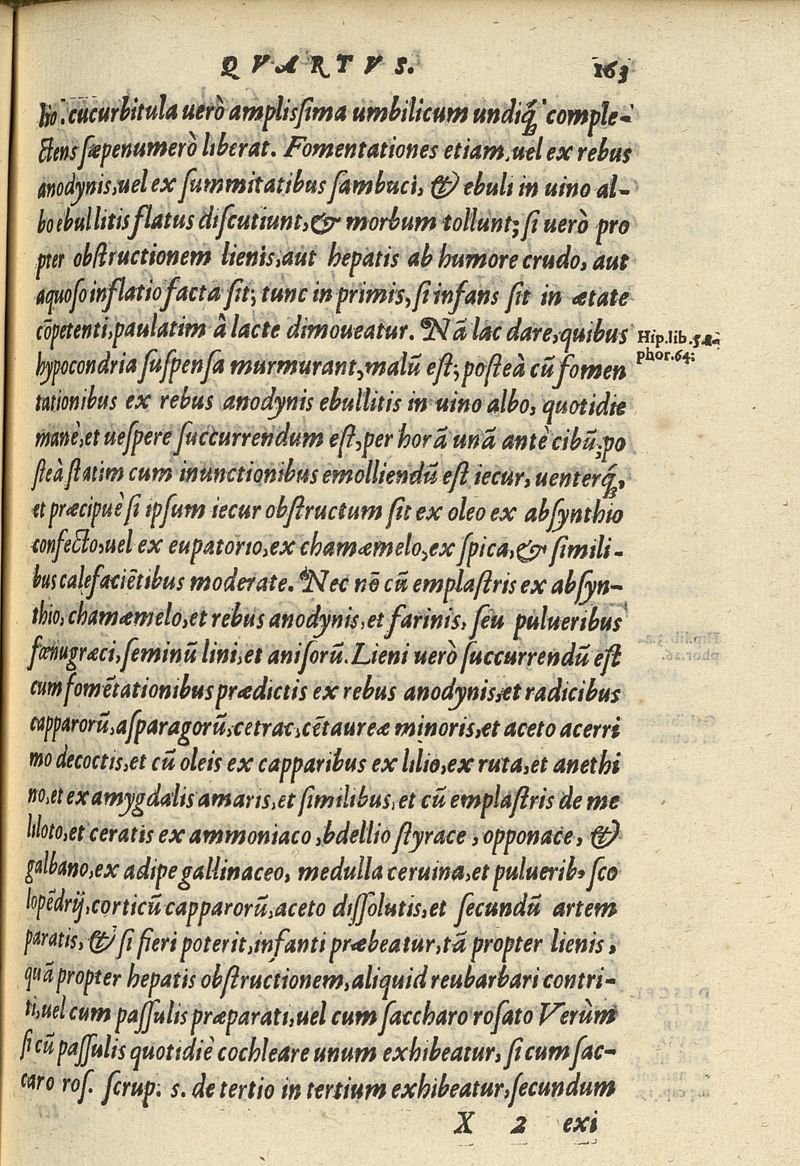 QVARTVS. 163
lio. cucurbitula uerò amplißima umbilicum undiq́; comple-
ctens sæpenumerò liberat. Fomentationes etiam, uel ex rebus
anodynis, uel ex summitatibus sambuci, & ebuli in uino al-
bo ebullitis flatus discutiunt, & morbum tollunt; si uerò pro
pter obstructionem lienis, aut hepatis ab humore crudo, aut
aquoso inflatio facta sit; tunc in primis, si infans sit in ætate
cõpetenti, paulatim à lacte dimoueatur. Nã lac dare, quibus
Hip. lib. 5. a-
phor. 64:
hypocondria suspensa murmurant, malũ est; posteà cũ fomen
tationibus ex rebus anodynis ebullitis in uino albo, quotidie
manè, et uespere succurrendum est, per horã unã antè cibũ; po
steà statim cum inunctionibus emolliendũ est iecur, uenterq́;,
et præcipuè si ipsum iecur obstructum sit ex oleo ex absynthio
confecto, uel ex eupatorio, ex chamæmelo, ex spica, & simili-
bus calefaciẽtibus moderate. Nec nõ cũ emplastris ex absyn-
thio, chamæmelo, et rebus anodynis, et farinis, seu pulueribus
fœnugræci, seminũ lini, et anisorũ. Lieni uerò succurrendũ est
cum fomẽtationibus prædictis ex rebus anodynis, et radicibus
capparorũ, asparagorũ, cetrac, cẽtaureæ minoris, et aceto acerri
mo decoctis, et cũ oleis ex capparibus ex lilio, ex ruta, et anethi
no, et ex amygdalis amaris, et similibus, et cũ emplastris de me
liloto, et ceratis ex ammoniaco, bdellio styrace, opponace, &
galbano, ex adipe gallinaceo, medulla ceruina, et pulueribꝰ sco
lopẽdrij, corticũ capparorũ, aceto dissolutis, et secundũ artem
paratis, & si fieri poterit, infanti præbeatur, tã propter lienis,
quã propter hepatis obstructionem, aliquid reubarbari contri-
ti, uel cum passulis præparati, uel cum saccharo rosato Verùm
si cũ passulis quotidiè cochleare unum exhibeatur, si cum sac-
caro ros. scrup. s. de tertio in tertium exhibeatur, secundum
X 2 exi